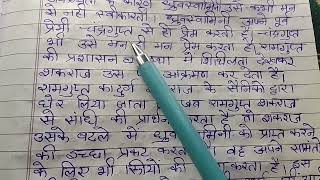 के कारण ध्रुवस्वामिनी उसे कभी मन
से नहीं स्वीकारती। ध्रुवस्वामिनी अपने पूर्व
प्रेमी चन्द्रगुप्त से ही प्रेम करती है। चन्द्रगुप्त
भी उसे मन मन प्रेम करता है। रामगुप्त
की प्रशासन व्यवस्था में शिथिलता देखकर
शकराज उस पर आक्रमण कर देता है।
रामगुप्त का दुर्ग शकराज के सैनिकों द्वारा
घेर लिया जाता जब रामगुप्त शकराज
से संधि की प्रार्थना करता है तो शकराज
उसके बदले में ध्रुवस्वामिनी को प्राप्त करने
की इच्छा प्रकट करता वह अपने सामंतों
के लिए भी स्त्रियों की करता है। इस